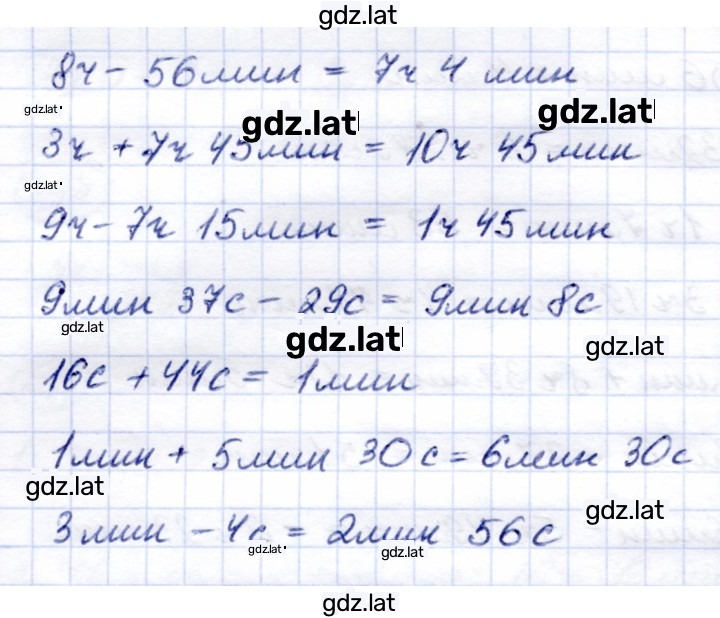 gdz.lat
8ч - 56 мин = 7ч 4 мин
gdz.lat
gdz.lat
gdz.lat
3ч + 7ч 45 мин = 10ч 45 мин
gdz.lat
9ч - 7ч 15 мин = 1ч 45 мин
9 мин 37с - 29с = 9 мин 8с
gdz.lat
gdz.lat
gdz.lat
16с + 44с = 1 мин
1 мин + 5 мин 30 с = 6 мин 30с
gdz.lat
gdz.lat
3 мин - 4с = 2 мин 56 с
gdz.lat
gdz.lat
gdz.lat